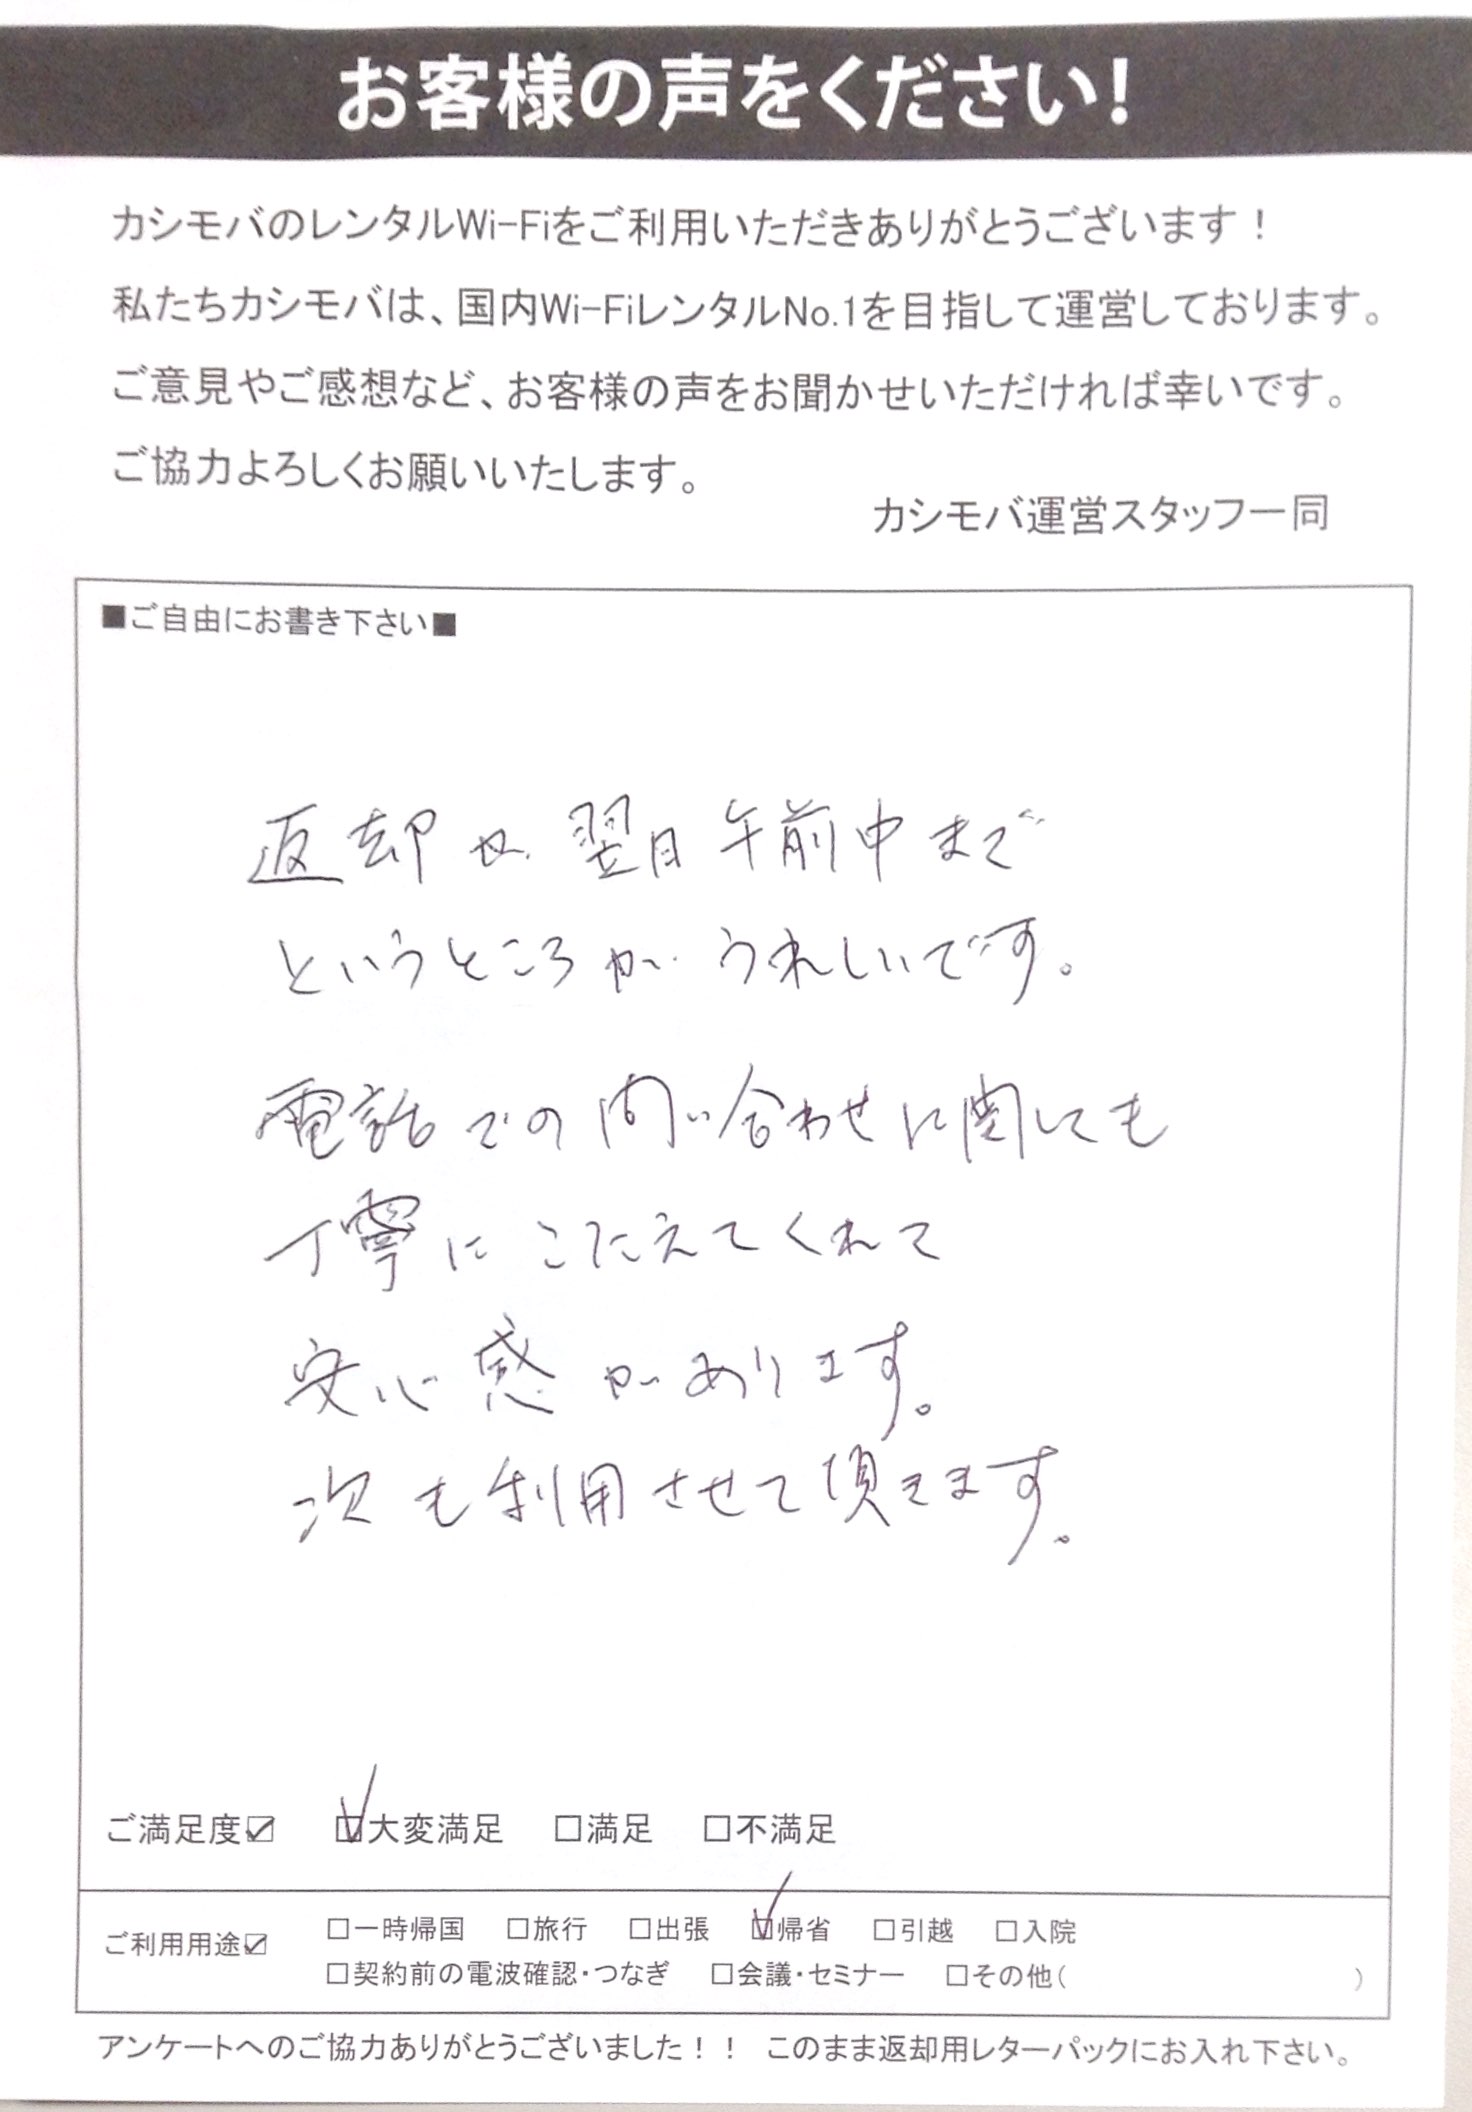 お客様の声をください!
カシモバのレンタルWi-Fiをご利用いただきありがとうございます！
私たちカシモバは、国内Wi-FiレンタルNo.1を目指して運営しております。
ご意見やご感想など、お客様の声をお聞かせいただければ幸いです。
ご協力よろしくお願いいたします。
カシモバ運営スタッフ一同
■ご自由にお書き下さい■
返却が翌日午前中まで
というところが うれしいです。
電話での問い合わせに関しても
丁寧にこたえてくれて
安心感があります。
次も利用させて頂きます。
ご満足度☑ ☑大変満足 □満足 □不満足
ご利用用途☑ □一時帰国 □旅行 □出張 ☑帰省 □引越 □入院
□契約前の電波確認・つなぎ □会議・セミナー □その他( )
アンケートへのご協力ありがとうございました！！ このまま返却用レターパックにお入れ下さい。